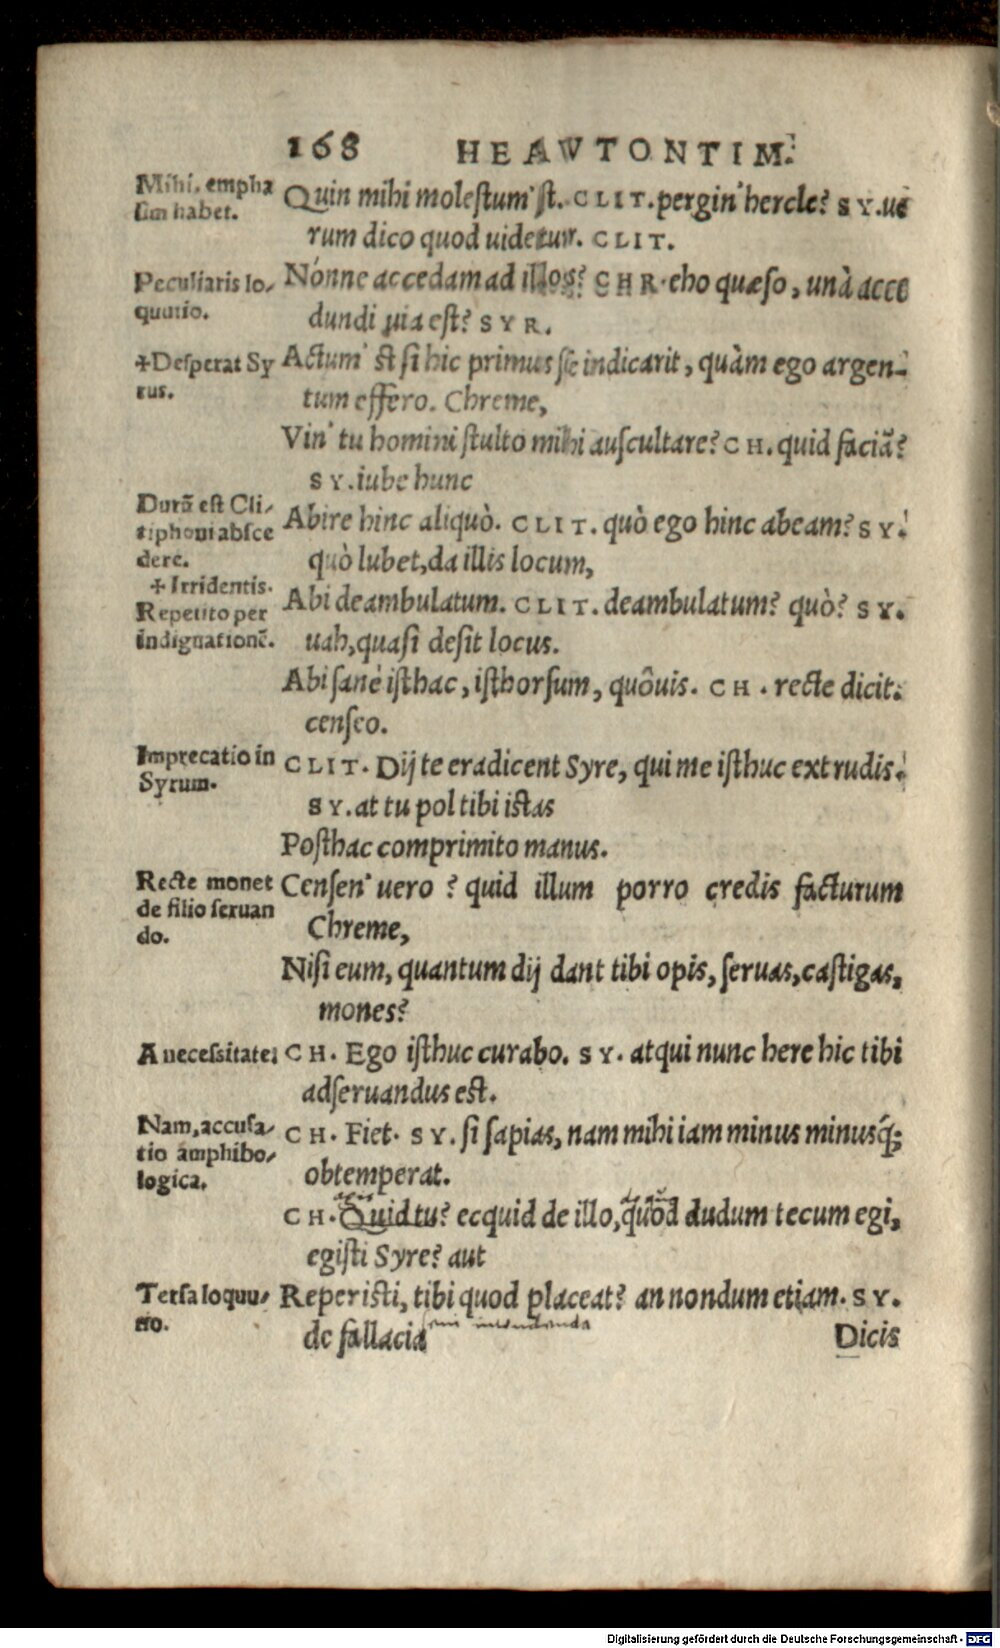 168 HEAVTONTIM.
Mihi. empha
sim habet.
Quin mihi molestum'st. CLIT. pergin' hercle? SY. ue
rum dico quod uidetur. CLIT.
Peculiaris lo-
quutio.
Nónne accedam ad illos? CHR. eho quæso, unà acce
dundi uia est? SYR.
+Desperat Sy
rus.
Actum' st si hic primus se indicarit, quàm ego argen-
tum effero. Chreme,
Vin' tu homini stulto mihi auscultare? CH. quid faciā?
SY. iube hunc
Durū est Cli-
tiphoni absce
dere.
Abire hinc aliquò. CLIT. quò ego hinc abeam? SY.
quò lubet, da illis locum,
+ Irridentis.
Repetito per
indignationē.
Abi deambulatum. CLIT. deambulatum? quò? SY.
uah, quasi desit locus.
Abi sanè isthac, isthorsum, quôuis. CH. recte dicit.
censeo.
Imprecatio in
Syrum.
CLIT. Dij te eradicent Syre, qui me isthuc extrudis.
SY. at tu pol tibi istas
Posthac comprimito manus.
Recte monet
de filio seruan
do.
Censen' uero? quid illum porro credis facturum
Chreme,
Nisi eum, quantum dij dant tibi opis, seruas, castigas,
mones?
A necessitate:
CH. Ego isthuc curabo. SY. atqui nunc here hic tibi
adseruandus est.
Nam, accusa-
tio amphibo-
logica.
CH. Fiet. SY. si sapias, nam mihi iam minus minusq́;
obtemperat.
CH. Quid tu? ecquid de illo, quod dudum tecum egi,
egisti Syre? aut
Tersa loquu-
tio.
Reperisti, tibi quod placeat? an nondum etiam. SY.
de fallacia
Dicis
Digitalisierung gefördert durch die Deutsche Forschungsgemeinschaft - DFG